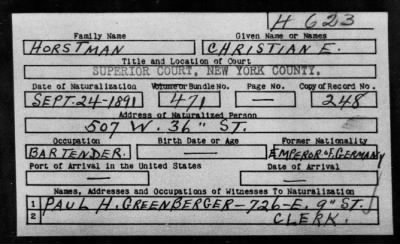 H 623
Family Name Given Name or Names
HORSTMAN CHRISTIAN E.
Title and Location of Court
SUPERIOR COURT, NEW YORK COUNTY.
Date of Naturalization Volume or Bundle No. Page No. Copy of Record No.
SEPT-24-1891 471 — 248
Address of Naturalized Person
507 W. 36" ST.
Occupation Birth Date or Age Former Nationality
BARTENDER. — EMPEROR OF GERMANY
Port of Arrival in the United States Date of Arrival
— —
Names, Addresses and Occupations of Witnesses To Naturalization
1 PAUL H. GREENBERGER-726-E. 9" ST.
2 CLERK.